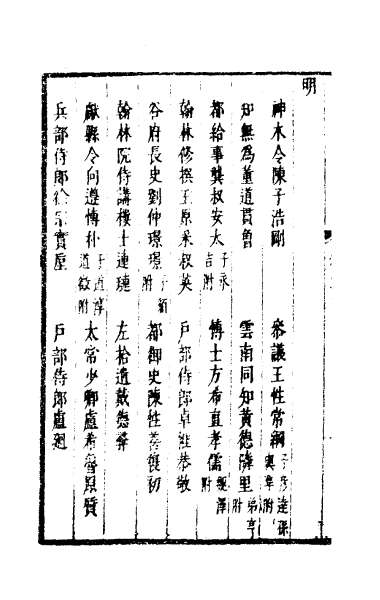 明
神木令陳子浩剛 參議王性常綱
知無為董道貫曾 雲南同知黃德鄰里 弟亨附
都給事龔叔安太 子永吉附 博士方希直孝儒
翰林修撰王原采叔英 戶部侍郎卓惟恭敬
谷府長史劉仲璟璟 都御史陳性善復初
翰林院侍講樓士連璉 左拾遺戴德彝
獻縣令向遵博朴 子道淳道徵附 太常少卿盧希魯原質
兵部侍郎徐宗實垕 戶部侍郎盧迥